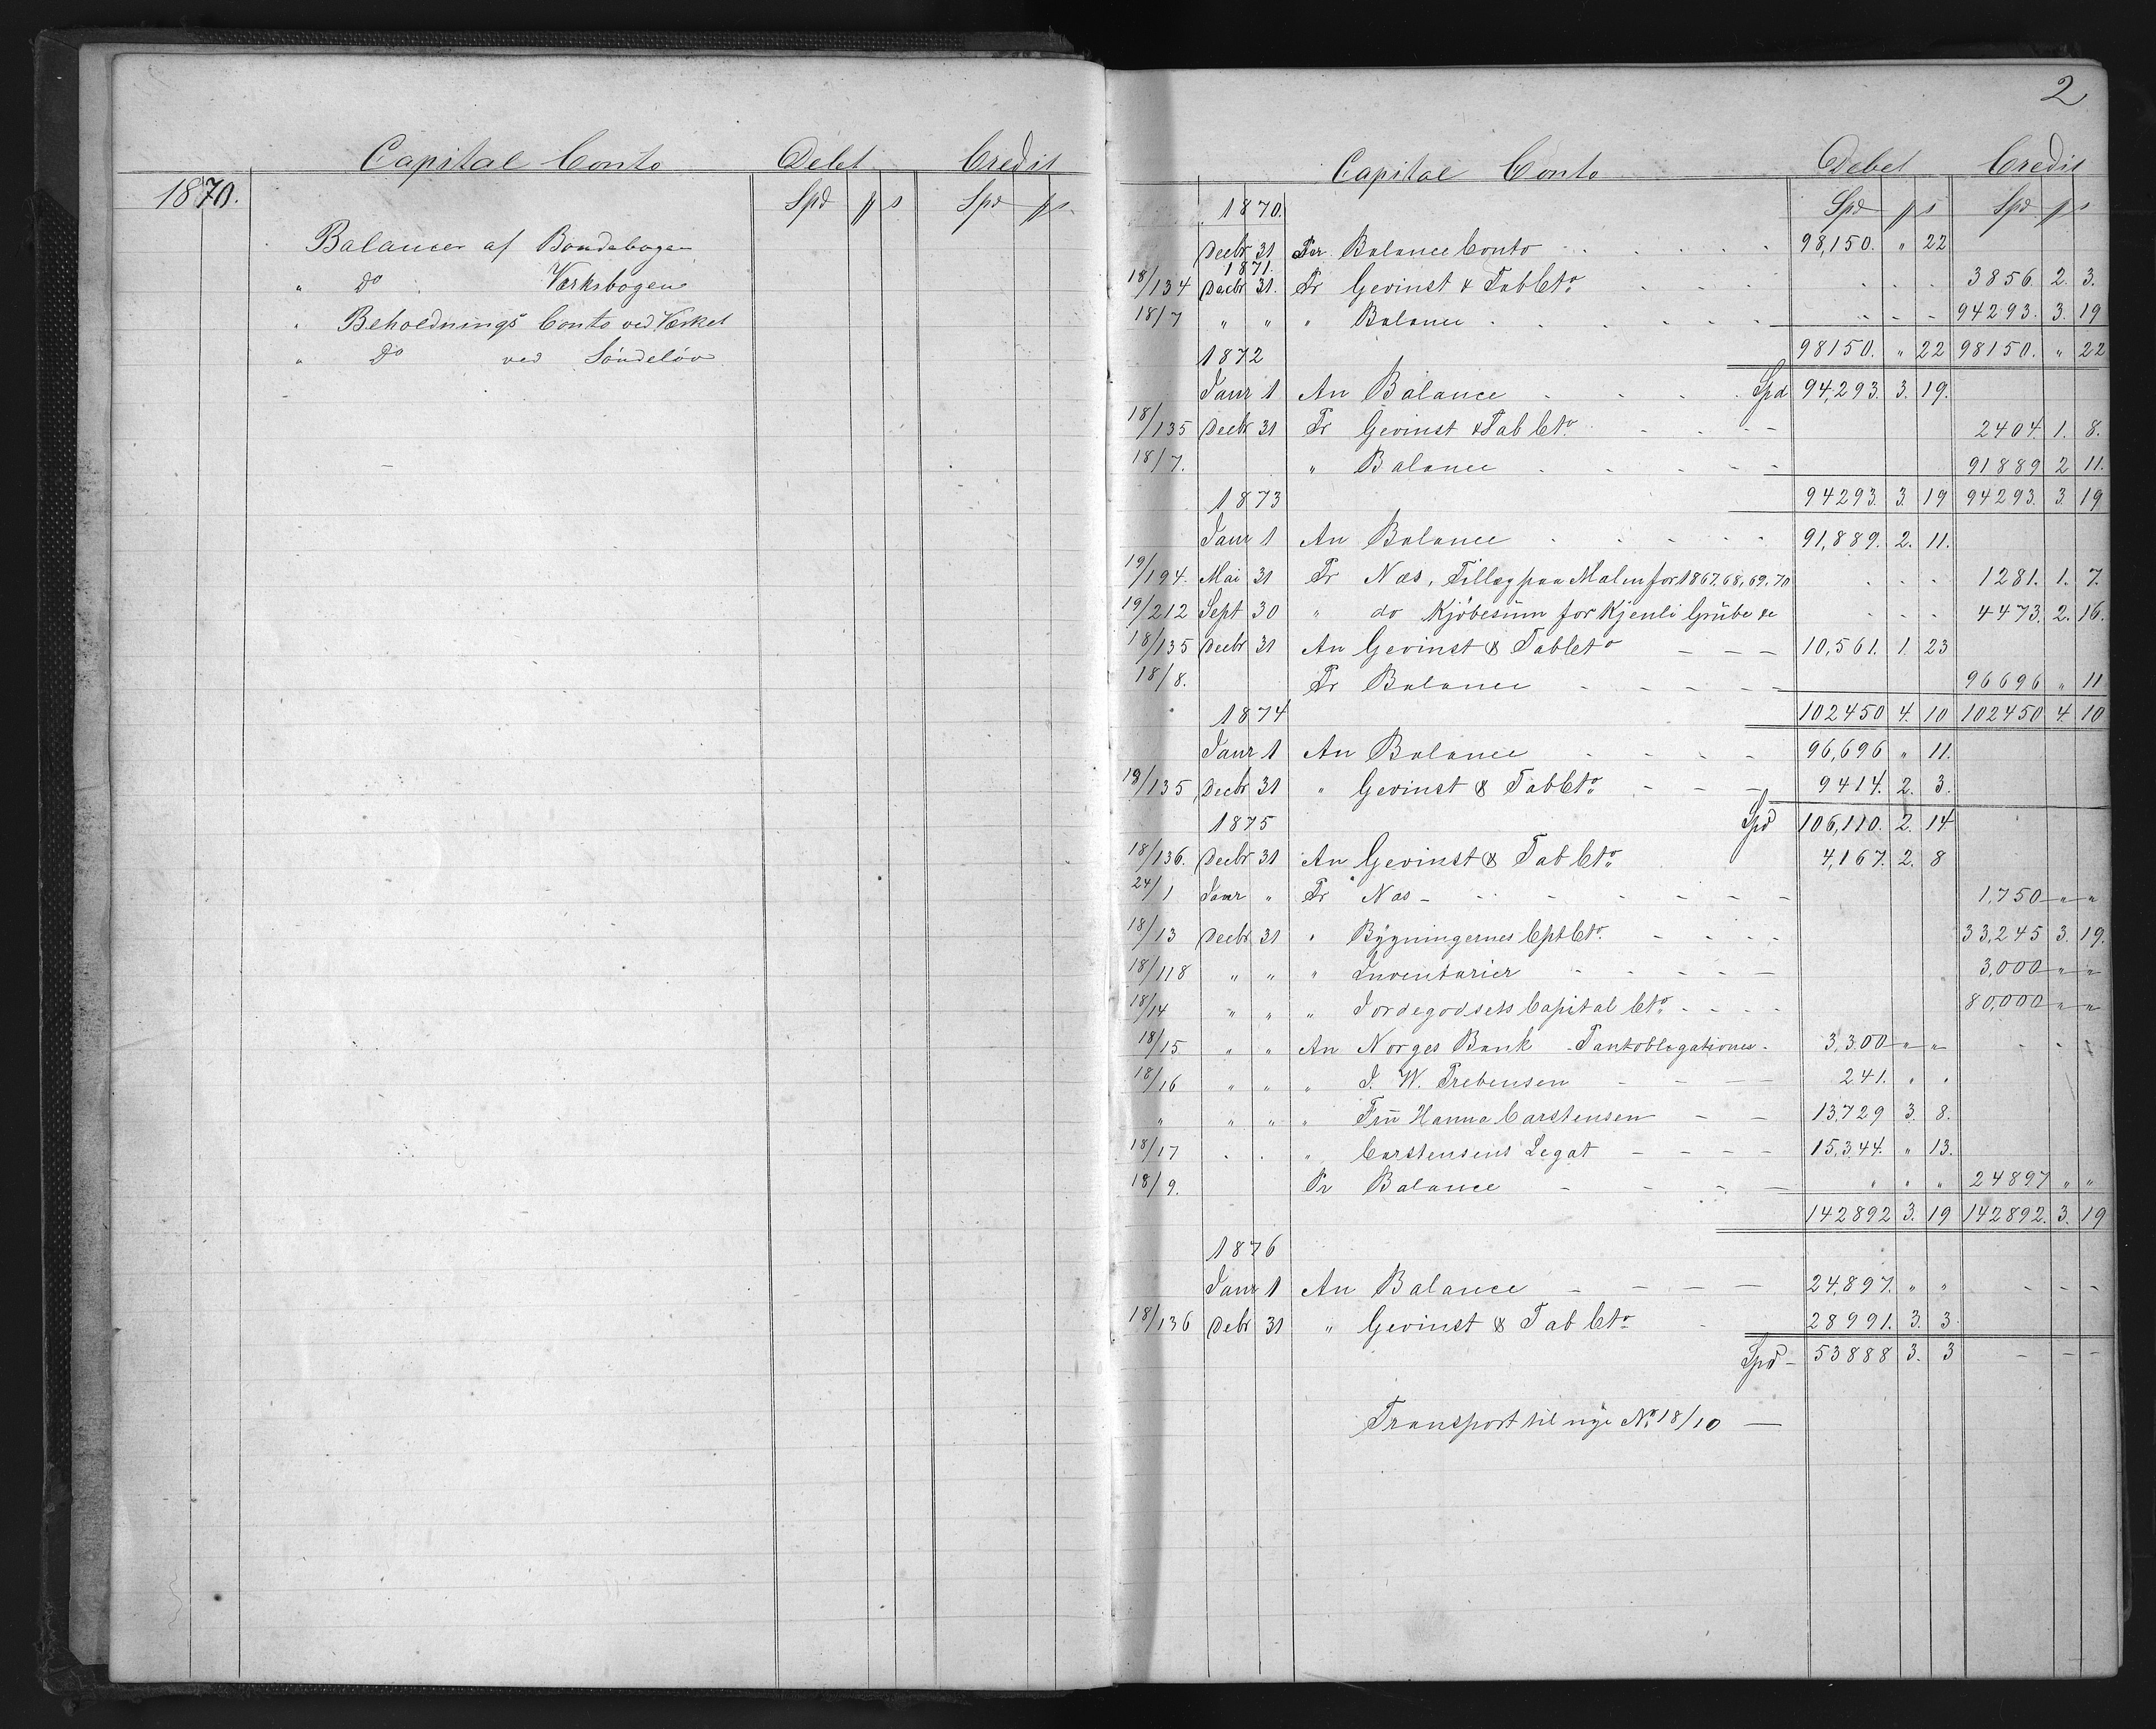 Capital Conto Debet Credit
1870. Spd p s Spd p s
Balancer af Bondebogen
" Do Værksbogen
" Beholdnings Conto ved Værket
" Do ved Söndelöv
2
Capital Conto Debet Credit
1870. Spd p s Spd p s
Decbr 31 Per Balance Conto 98,150. " 22
1871.
18/134 Decbr 31. Pr Gevinst & Tab Cto 3856. 2. 3.
18/7 " " " Balance 94293. 3. 19
1872 98150. " 22 98150. " 22
Janr 1 An Balance Spd 94,293. 3. 19.
18/135 Decbr 31 Pr Gevinst & Tab Cto 2404. 1. 8.
18/7. " Balance 91889 2 11.
1873 94293. 3. 19 94293. 3. 19
Janr 1 An Balance 91,889. 2. 11.
19/194. Mai 31 Pr Næs, Tillæg paa Malm for 1867.68,69,70 1281. 1. 7.
19/212 Sept 30 " do Kjöbesum for Kjenli Grube &c 4473. 2. 16.
18/135 Decbr 31 An Gevinst & Tab Cto 10,561. 1. 23
18/8. Pr Balance 96696 " 11
1874 102450 4. 10 102450 4. 10
Janr 1 An Balance 96,696 " 11.
18/135 Decbr 31 " Gevinst & Tab Cto 9414. 2. 3.
1875 Spd 106,110. 2. 14
18/136. Decbr 31 An Gevinst & Tab Cto 4,167. 2. 8
24/1 Janr " Pr Næs 1,750 " "
18/13 Decbr 31 " Bygningernes Cpt Cto 33,245 3. 19.
18/118 " " " Inventarier 3,000 " "
18/14 " " " Jordegodsets Capital Cto 80,000 " "
18/15 " " An Norges Bank Pantobligationer 3,300 " "
18/16 " " " J. W. Prebensen 241. " "
" " " " Fru Hanna Carstensen 13,729 3. 8.
18/17 " " " Carstensens Legat 15,344. " 13.
18/9. Pr Balance " " " 24897 " "
142892 3. 19 142892. 3. 19
1876
Janr 1 An Balance 24,897. " "
18/136 Debr 31 " Gevinst & Tab Cto 28991. 3. 3.
Spd 53888 3. 3
Transport til nye No 18/10